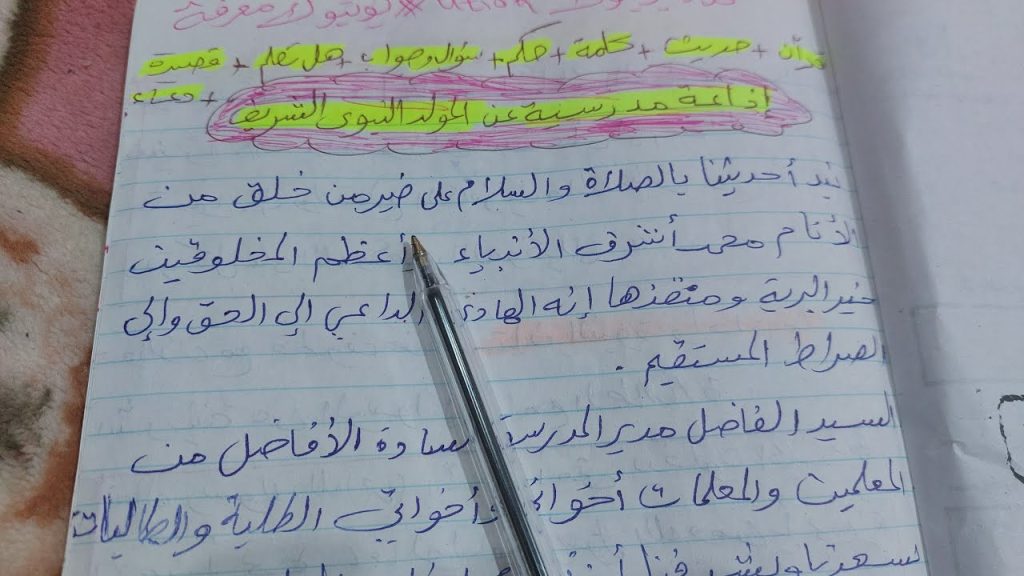 قرآن + حديث + كلمة + حكم + سؤال وجواب + هل تعلم + قصيرة
+ دعاء
إذاعة مدرسية عن المولد النبوي الشريف
نبدأ حديثنا بالصلاة والسلام على خير من خلق من
الأنام محمد أشرف الأنبياء أعظم المخلوقين
خير البرية ومنقذها إنه الهادي الداعي إلي الحق وإلي
الصراط المستقيم .
السيد الفاضل مدير المدرسة السادة الأفاضل من
المعلمين والمعلمات أخواني وأخواتي الطلبة والطالبات